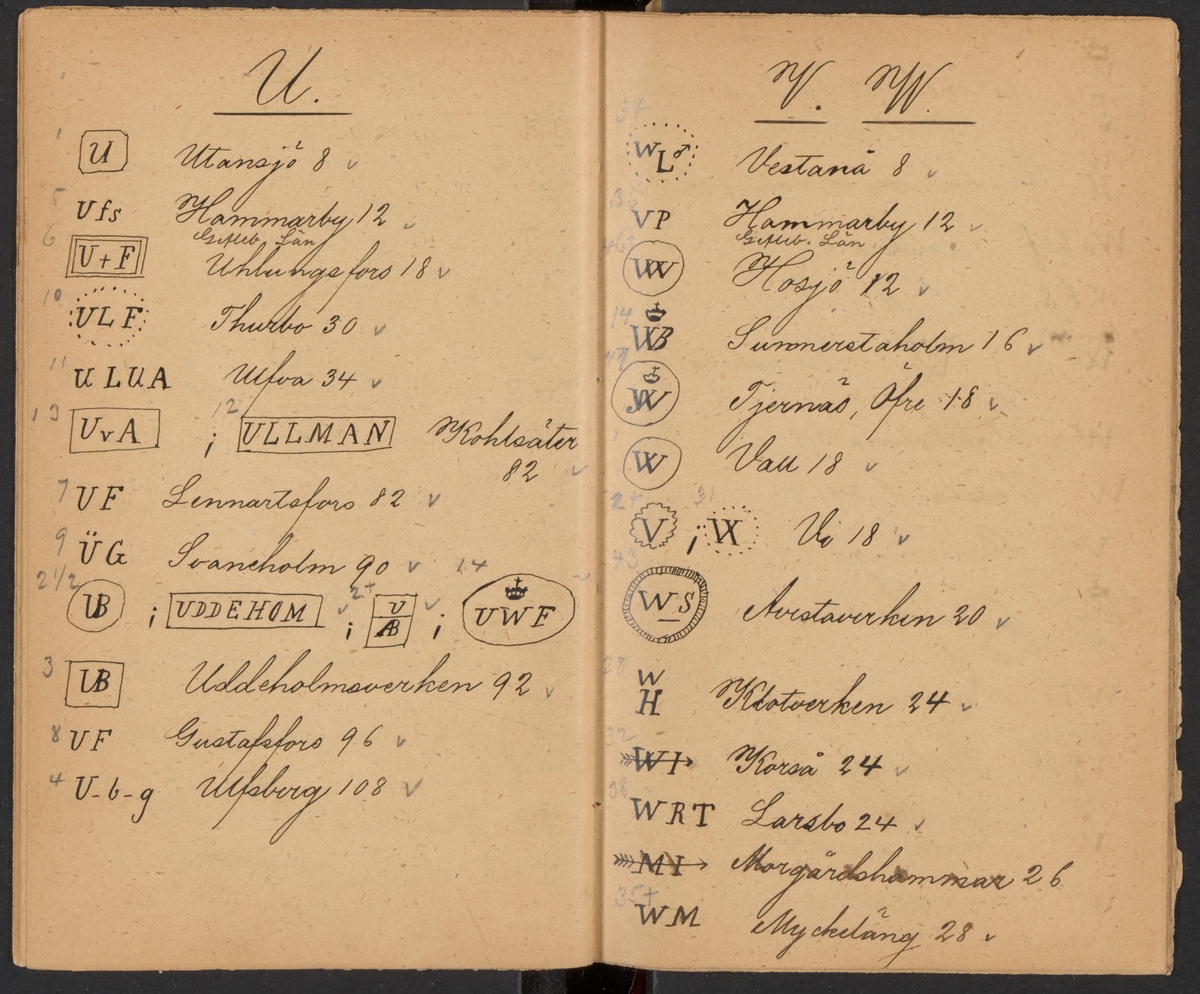 U.
1 U Utansjö 8 v
5 Ufs Hammarby 12 v
Gefleb. Län
6 U+F Uhlungsfors 18 v
10 ULF Thurbo 30 v
11 ULUA Ulfva 34 v
13 UvA ; 12 ULLMAN Kohlsäter
82 v
7 UF Lennartsfors 82 v
9 ÜG Svaneholm 90 v 14
2 1/2 UB ; UDDEHOM v ; 2+ U AB v ; UWF
3 UB Uddeholmsverken 92 v
8 UF Gustafsfors 96 v
4 U-b-g Ulfsberg 108 v
V. W.
34 WL♂ Vestanå 8 v
36 VP Hammarby 12 v
Gefleb. Län
W Hosjö 12 v
14 WB Sunnerstaholm 16 v
W Tjernäs, Öfre 18 v
1 W Vall 18 v
2+ V ; 31 VX Vi 18 v
43 WS Avestaverken 20 v
28 W
H Klotverken 24 v
32 WI Korså 24 v
38 WRT Larsbo 24 v
MI Morgårdshammar 26
35+ WM Myckeläng 28 v